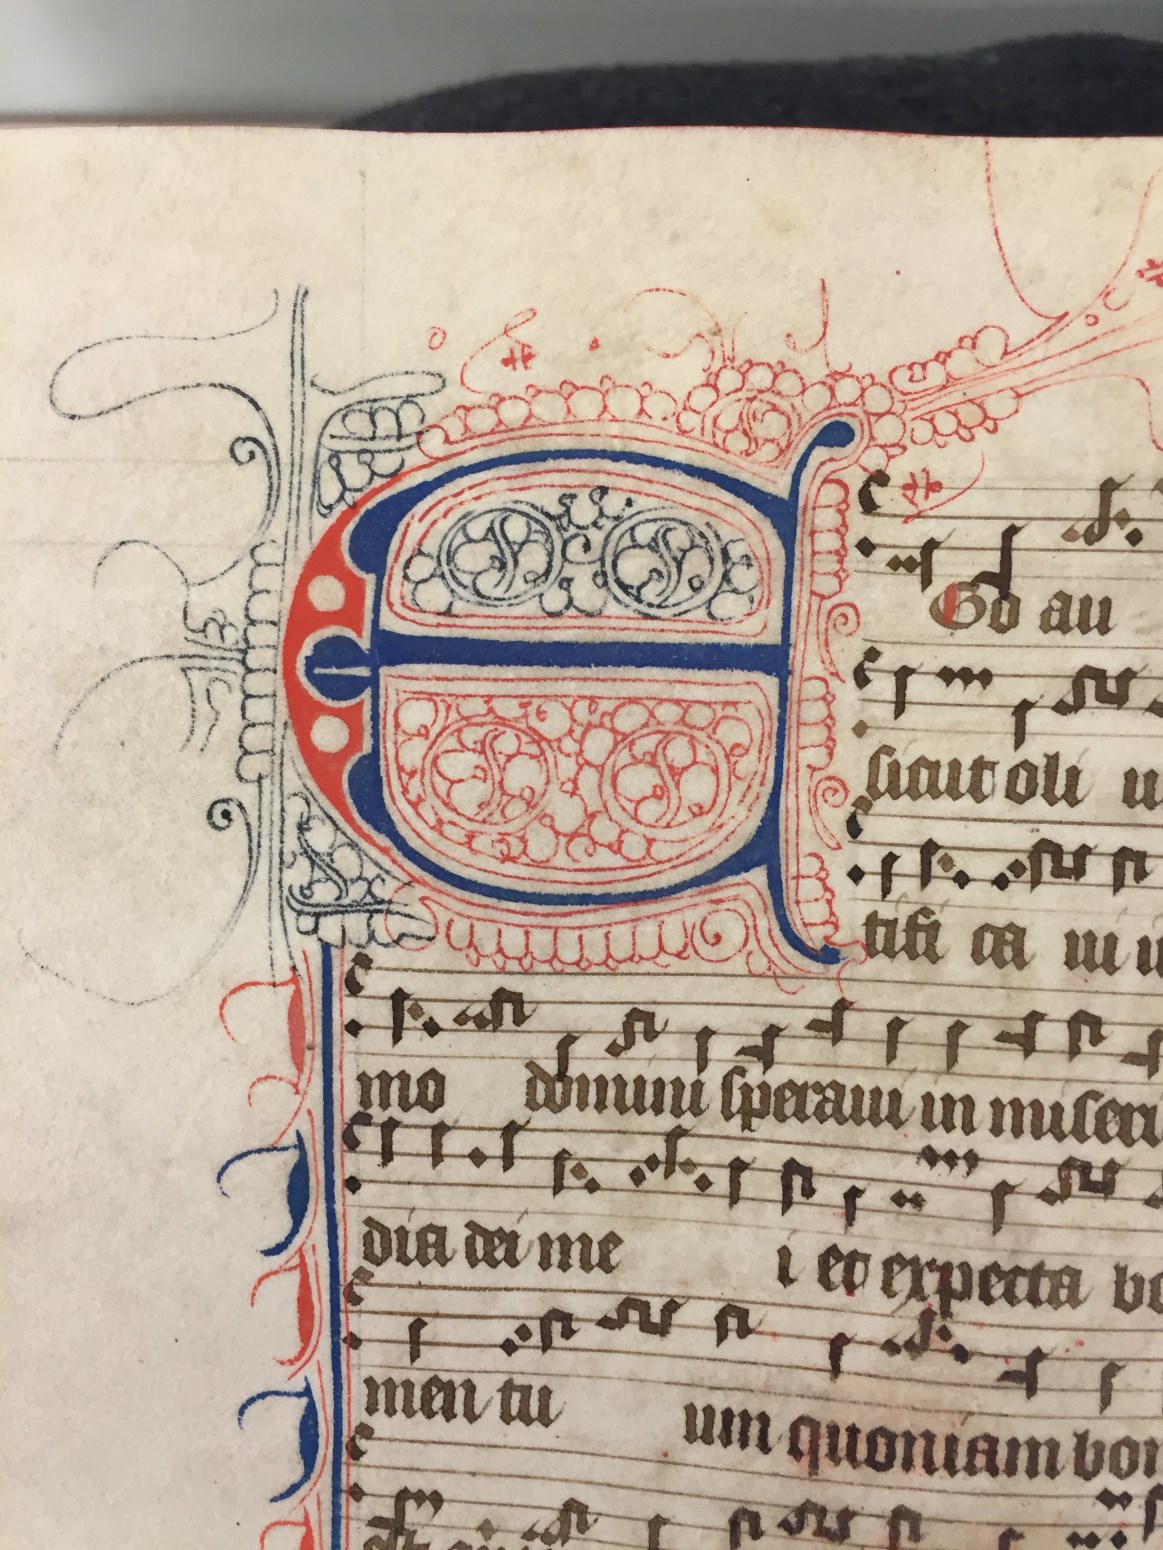 EGo au
sicut oli u
tifi ca ui i
mo domini speraui in miseri
dia dei me i et expecta bo
men tu um quoniam bon